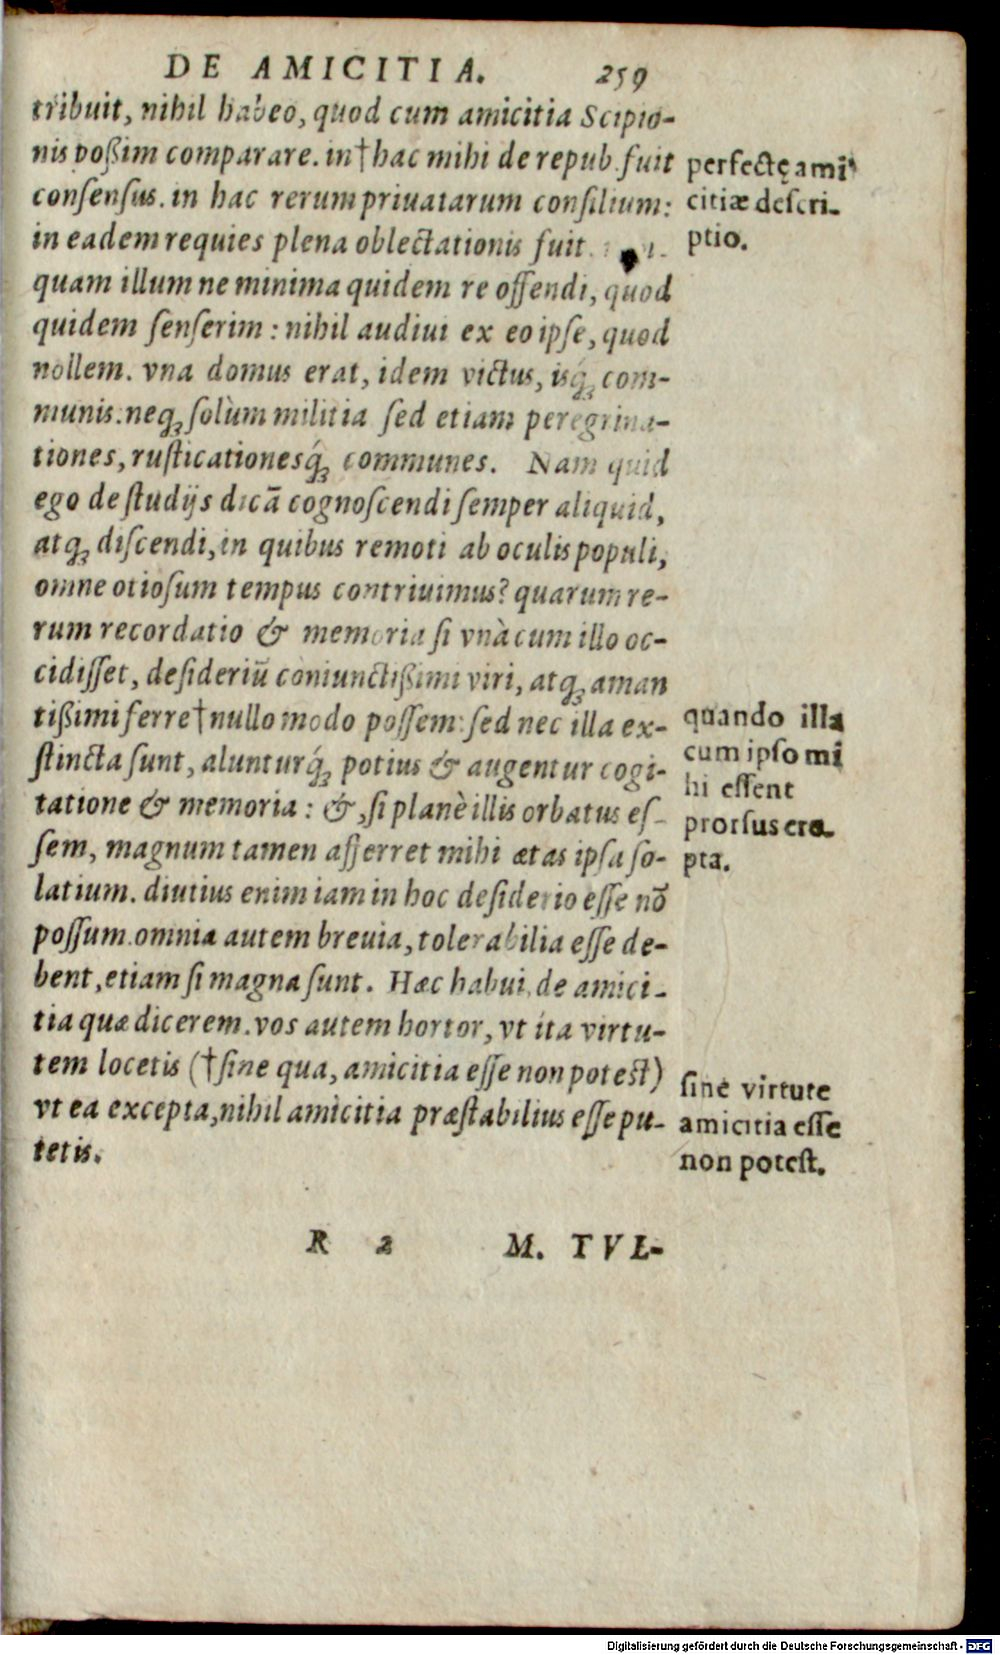 DE AMICITIA. 259
tribuit, nihil habeo, quod cum amicitia Scipio-
nis poßim comparare. in†hac mihi de repub. fuit
consensus. in hac rerum priuatarum consilium:
in eadem requies plena oblectationis fuit.
quam illum ne minima quidem re offendi, quod
quidem senserim: nihil audiui ex eo ipse, quod
nollem. vna domus erat, idem victus, isq́; com-
munis: neq; solùm militia sed etiam peregrina-
tiones, rusticationesq́; communes. Nam quid
ego de studijs dicā cognoscendi semper aliquid,
atq; discendi, in quibus remoti ab oculis populi,
omne otiosum tempus contriuimus? quarum re-
rum recordatio & memoria si vnà cum illo oc-
cidisset, desideriū coniunctißimi viri, atq; aman
tißimi ferre†nullo modo possem: sed nec illa ex-
stincta sunt, alunturq́; potius & augentur cogi-
tatione & memoria: &, si planè illis orbatus es-
sem, magnum tamen afferret mihi ætas ipsa so-
latium. diutius enim iam in hoc desiderio esse nō
possum. omnia autem breuia, tolerabilia esse de-
bent, etiam si magna sunt. Hæc habui, de amici-
tia quæ dicerem. vos autem hortor, vt ita virtu-
tem locetis (†sine qua, amicitia esse non potest)
vt ea excepta, nihil amicitia præstabilius esse pu-
tetis.
perfectę ami
citiæ descri-
ptio.
quando illa
cum ipso mi
hi essent
prorsus ere-
pta.
sine virtute
amicitia esse
non potest.
R 2 M. TVL-
Digitalisierung gefördert durch die Deutsche Forschungsgemeinschaft - DFG